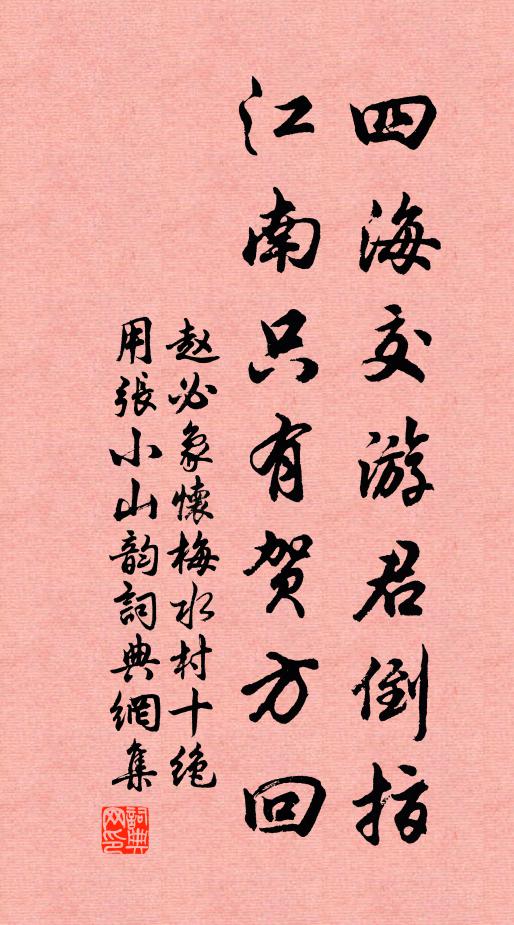 四海交游君倒指
江南只有贺方回
赵必象懷梅水村十绝
用張小山韵詞典網集
詞典网印